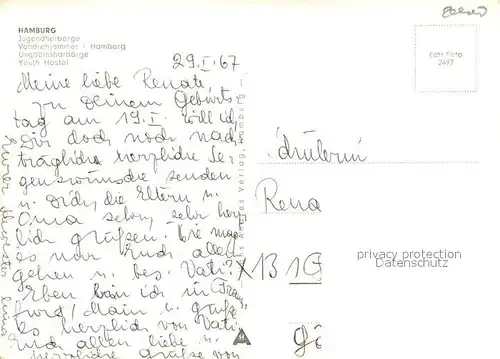 HAMBURG
Jugendherberge
Vandrehjemmet i Hamburg
Ungdomsharbärge
Youth Hostel
Echt Foto
2497
29.I.67
Meine liebe Renate,
zu Deinem Geburts
tag am 19.I. will ich
Dir doch noch nach
träglich herzliche Se-
genswünsche senden
u. Dich, die Eltern u.
Oma sehr, sehr herz
lich grüßen. Wie mag
es nur Euch allen
gehen u. bes. Vati?
Eben bin ich in Frank
furt/Main u. grüße
Es herzlich von Vati
Euch allen liebe u.
herzliche Grüße von
Eurer
Schülerin
Rena
X 13 1G
privacy protection
Datenschutz
Verlag, Hamburg